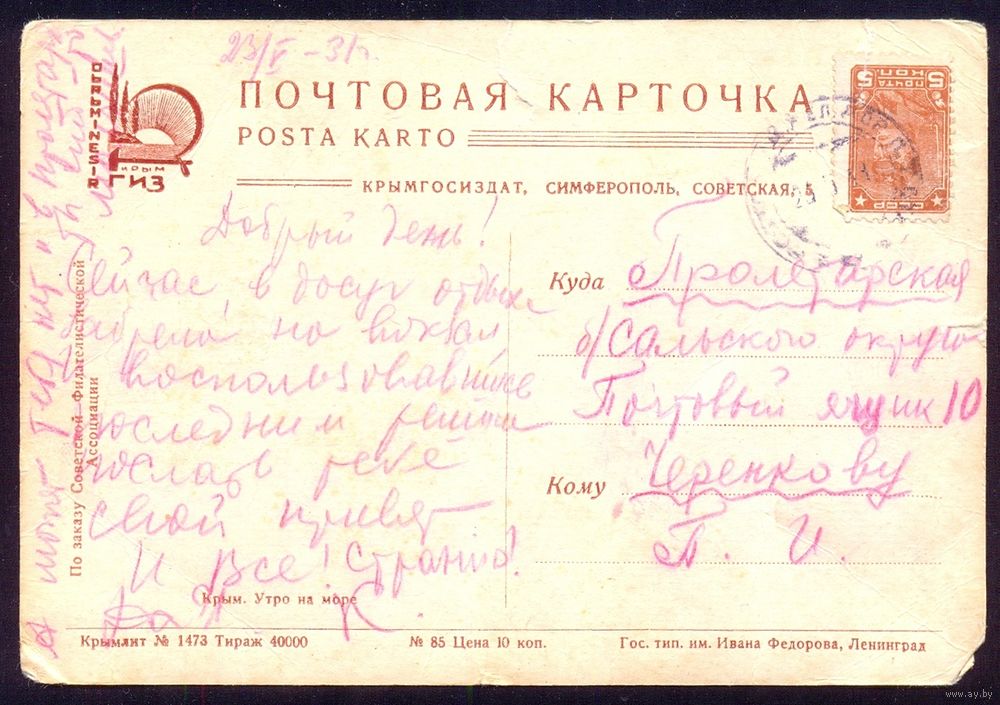 23/V – 31 г.
ПОЧТОВАЯ КАРТОЧКА
POSTA KARTO
QЬRЬMINEŞIR
КРЫМ
ГИЗ
КРЫМГОСИЗДАТ, СИМФЕРОПОЛЬ, СОВЕТСКАЯ, 5
ПОЧТА
5 КОП 5
СССР
Добрый день!
Сейчас, в досуг отдыха
забрела на вокзал
воспользовавшись
последним решила
послать тебе
свой привет
И все! Странно!
К.
Куда Пролетарская
б/Сальского округа
Почтовый ящик 10
Кому Черенкову
П. И.
По заказу Советской Филателистической
Ассоциации
Крым. Утро на море
Крымлит № 1473 Тираж 40000
№ 85 Цена 10 коп.
Гос. тип. им. Ивана Федорова, Ленинград
www.ay.by